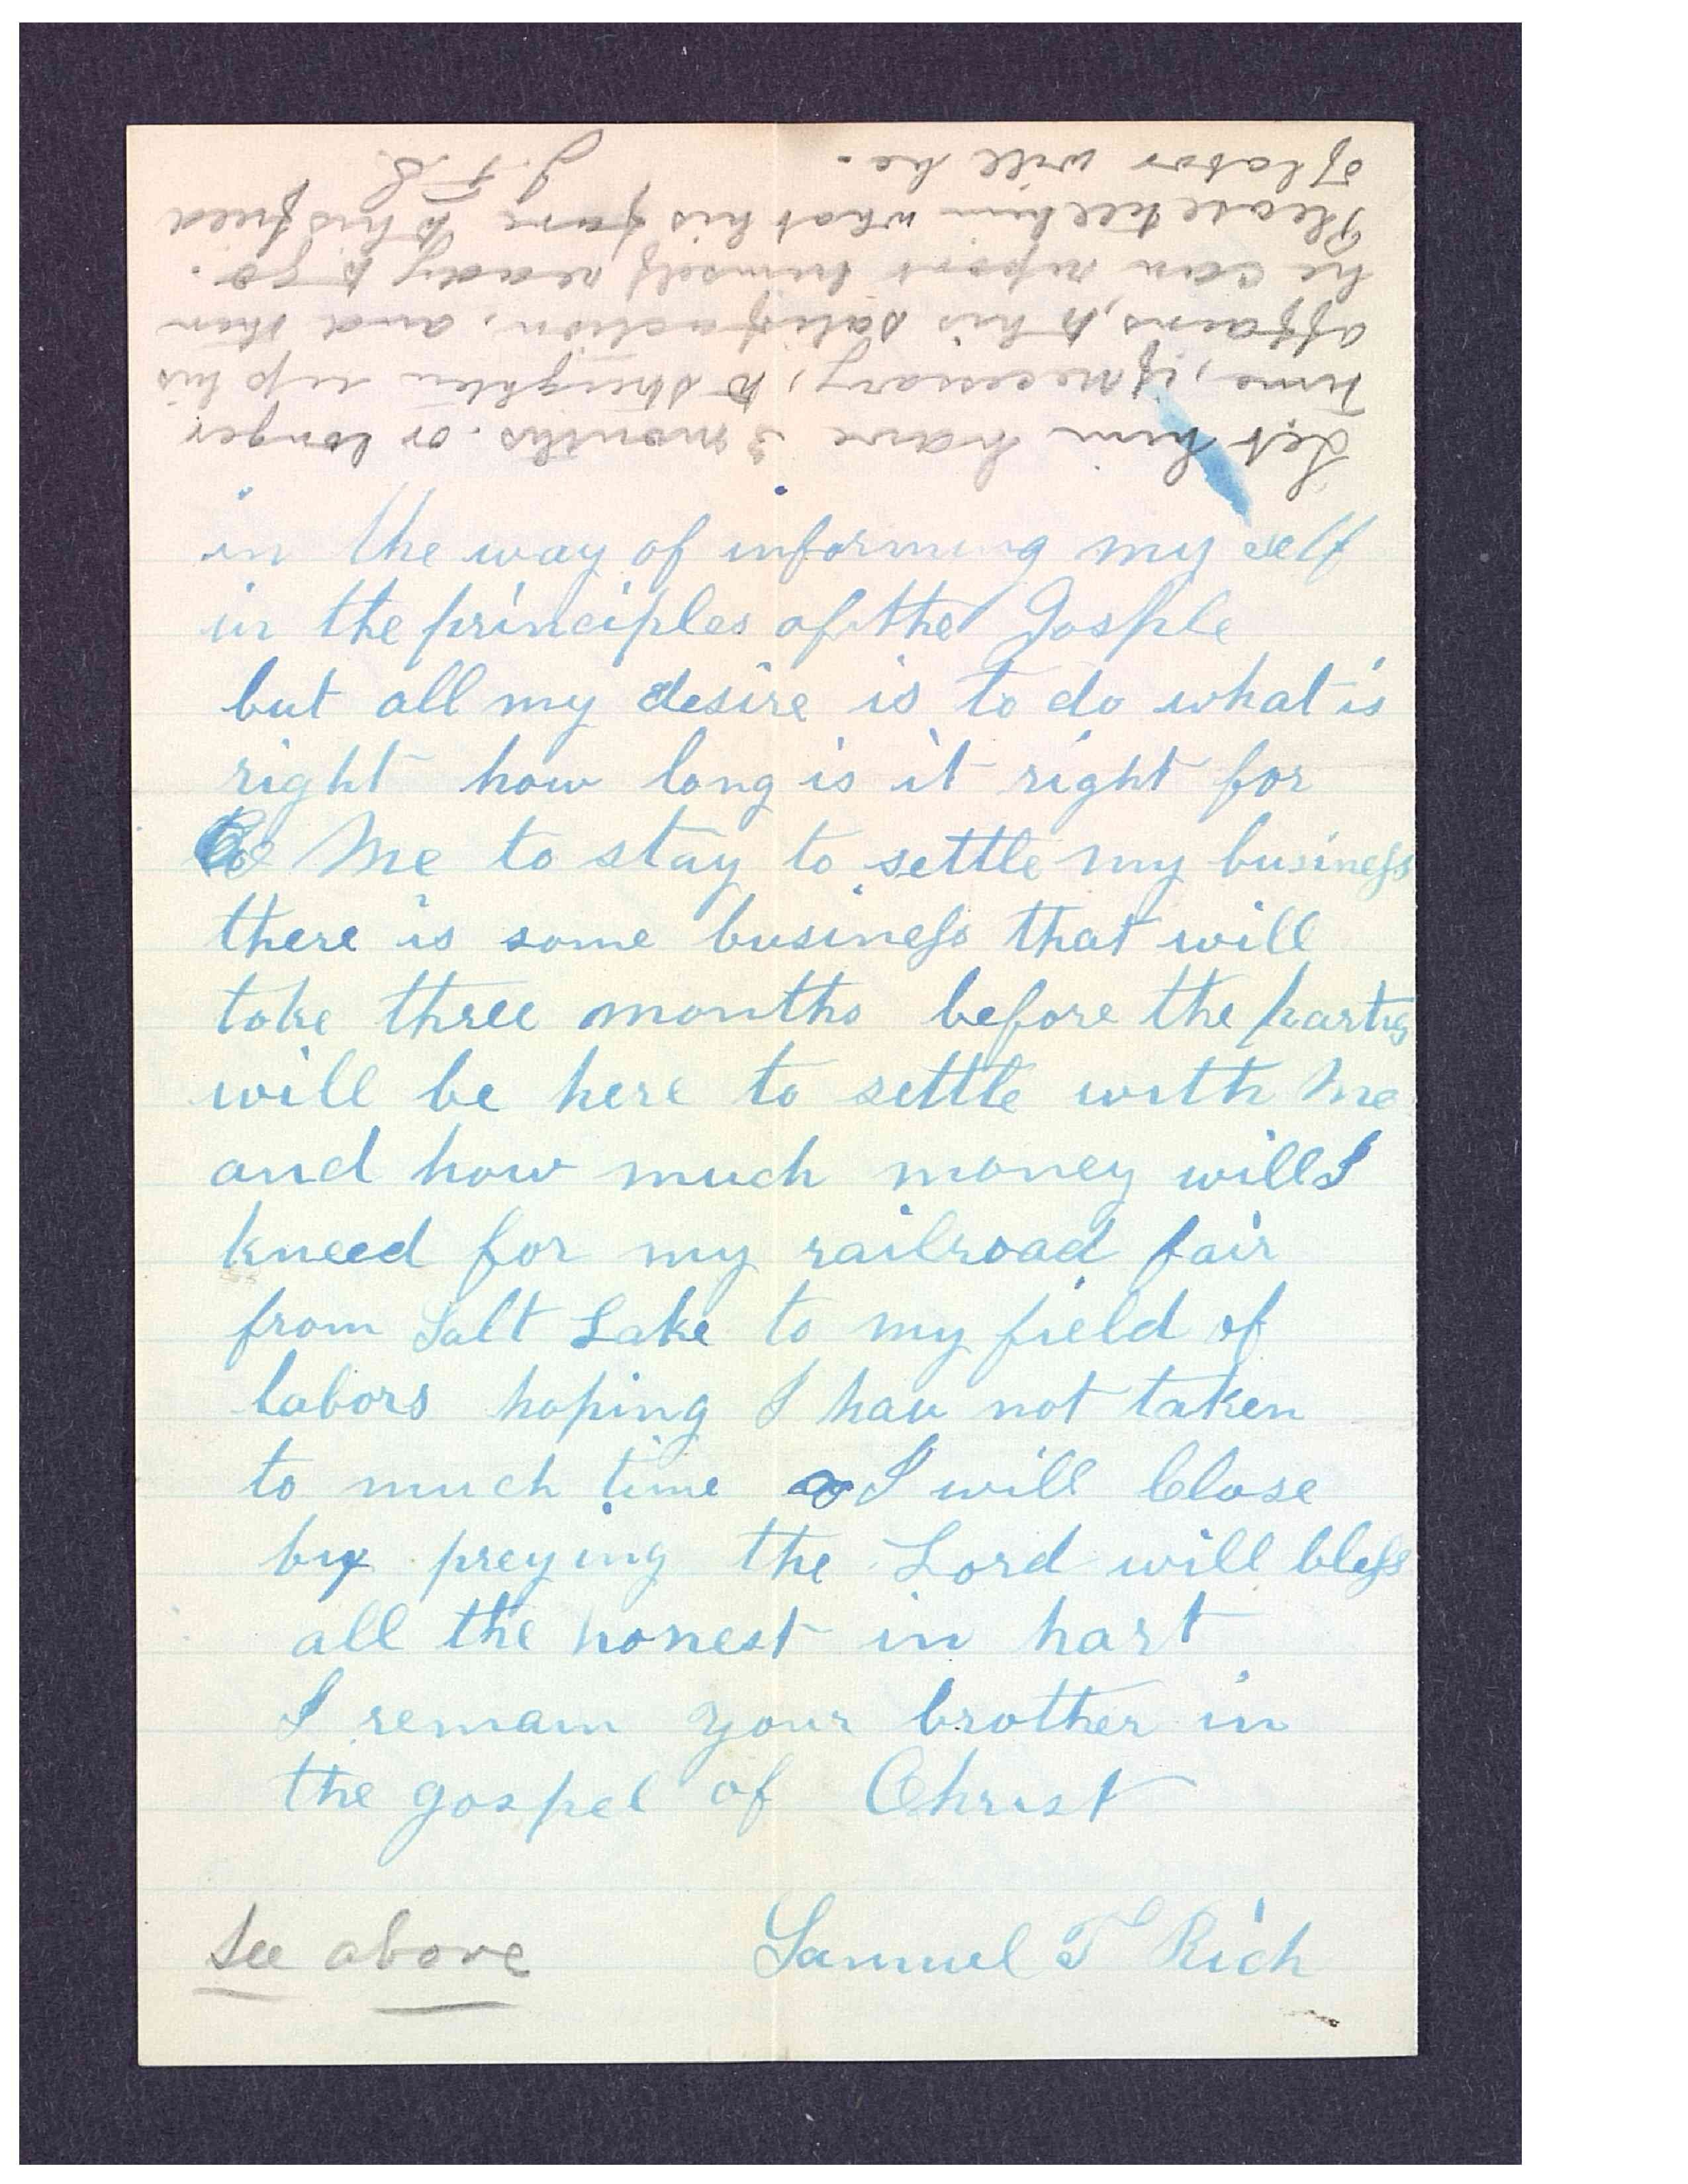 Let him have 3 months. or longer
time, if necessary, to streighten up his
affairs, to his satisfaction, and then
he can report himself ready to go.
Please tell him what his fare to his field
of labor will be.
J. F. S.
in the way of informing my self
in the principles of the Gosple
but all my desire is to do what is
right how long is it right for
Me to stay to settle my business
there is some business that will
take three months before the partys
will be here to settle with Me
and how much money will I
kneed for my railroad fair
from Salt Lake to my field of
labors hoping I hav not taken
to much time I will Close
by preying the Lord will bless
all the honest in hart
I remain your brother in
the gospel of Christ
Samuel T Rich
See above